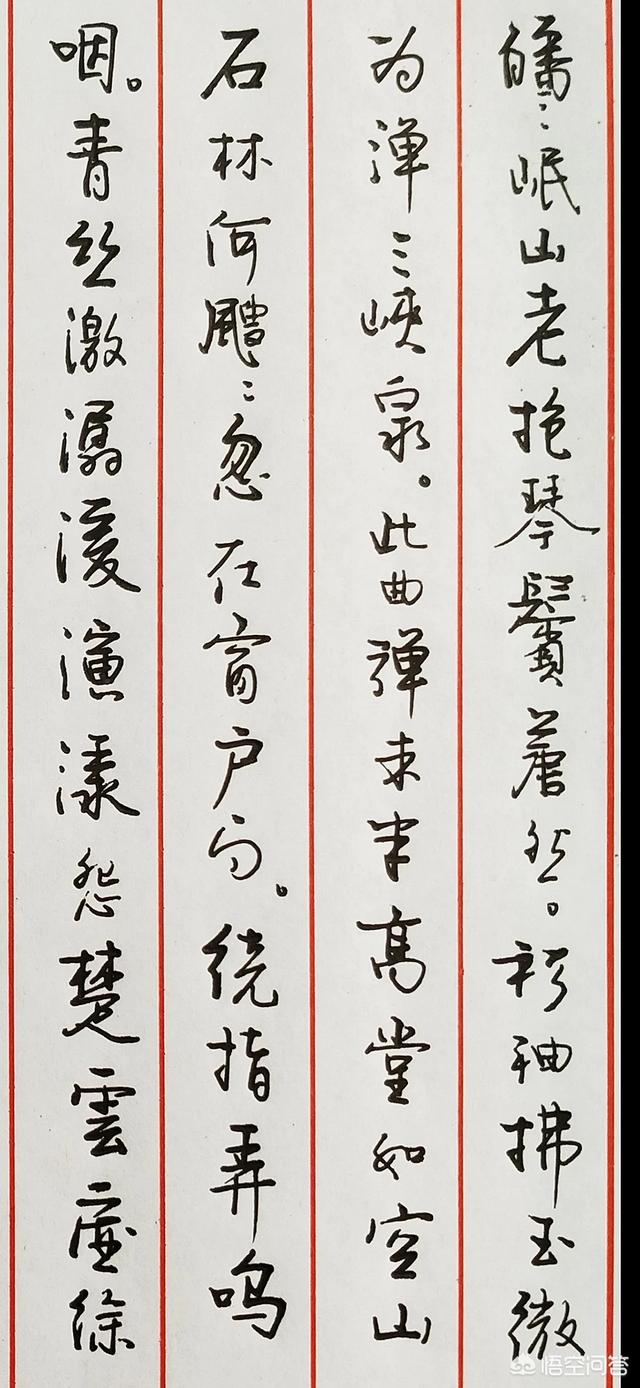 皤〻岷山老抱琴鬓蒼然。衫袖拂玉微
为弹三峡泉。此曲弹未半高堂如空山
石林何〻忽在窗户间。绕指弄鸣
咽。青丝激潺湲演漾怨楚雲虚徐
悟空问答